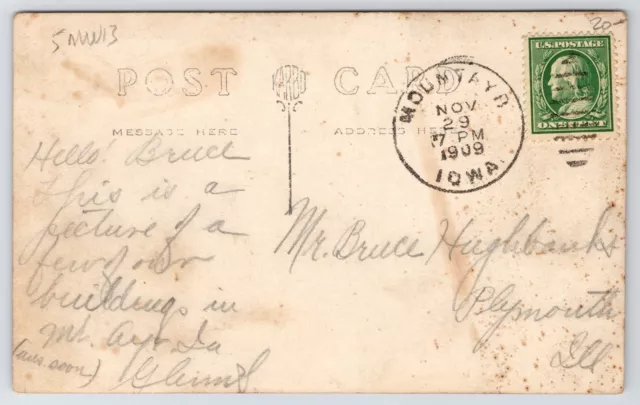 5 MW13
20-
POST CARD
U.S. POSTAGE
ONE CENT
MOUNT AYR
NOV.
29
7 PM
1909
IOWA.
MESSAGE HERE
ADDRESS HERE
Hello! Bruce
This is a
picture of a
few of our
buildings in
Mt. Ayr Ia
(ans. soon)
Mr. Bruce Hughbanks
Plymouth
Ill